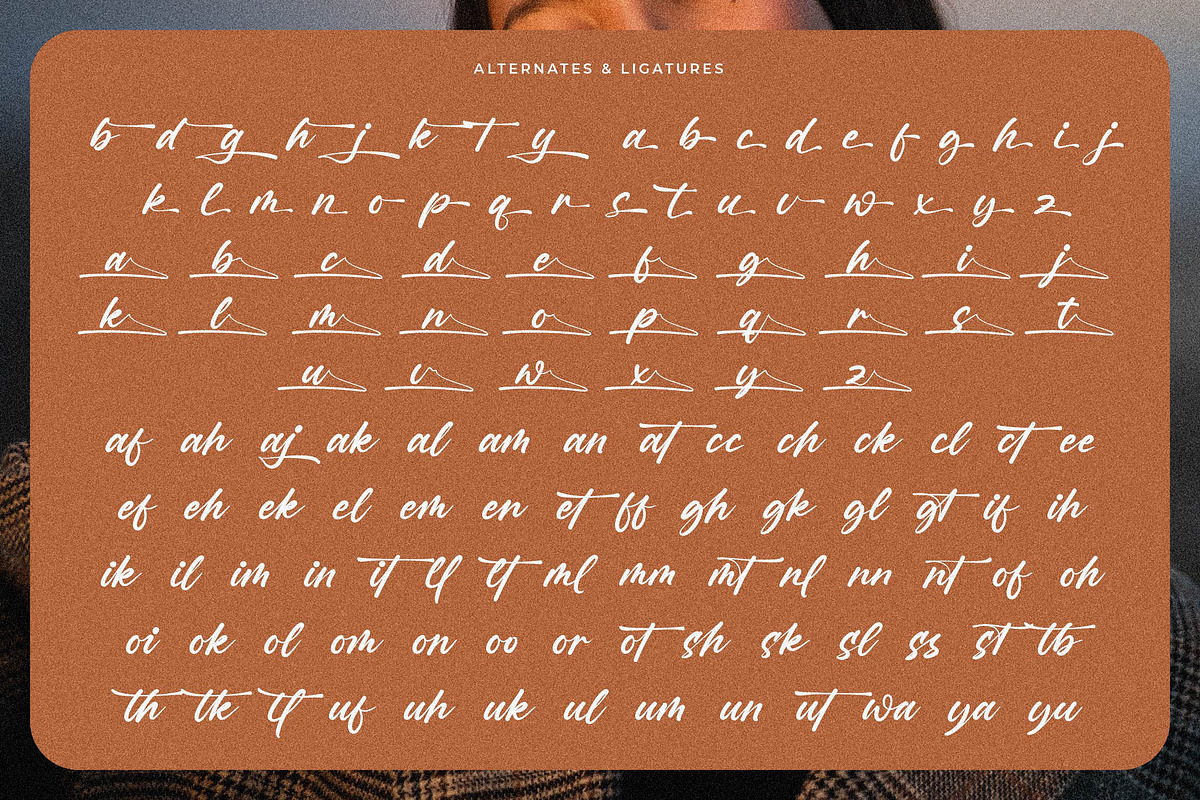 ALTERNATES & LIGATURES
b d g h j k t y a b c d e f g h i j
k l m n o p q r s t u v w x y z
a b c d e f g h i j
k l m n o p q r s t
u v w x y z
af ah aj ak al am an at cc ch ck cl ct ee
ef eh ek el em en et ff gh gk gl gt if ih
ik il im in it ll lt ml mm mt nl nn nt of oh
oi ok ol om on oo or ot sh sk sl ss st tb
th tk tl uf uh uk ul um un ut wa ya yu